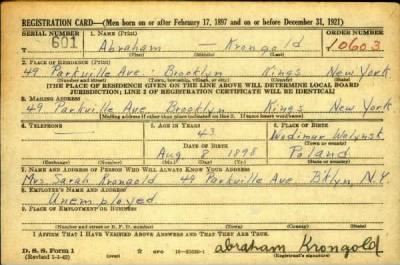 REGISTRATION CARD—(Men born on or after February 17, 1897 and on or before December 31, 1921)
SERIAL NUMBER 1. NAME (Print) ORDER NUMBER
601 Abraham — Krongold 10603
(First) (Middle) (Last)
2. PLACE OF RESIDENCE (Print)
49 Parkville Ave. Brooklyn Kings New York
(Number and street) (Town, township, village, or city) (County) (State)
[THE PLACE OF RESIDENCE GIVEN ON THE LINE ABOVE WILL DETERMINE LOCAL BOARD
JURISDICTION; LINE 2 OF REGISTRATION CERTIFICATE WILL BE IDENTICAL]
3. MAILING ADDRESS
49 Parkville Ave Brooklyn Kings New York
[Mailing address if other than place indicated on line 2. If same insert word same]
4. TELEPHONE 5. AGE IN YEARS 6. PLACE OF BIRTH
43 Wolynsk
DATE OF BIRTH (Town or county)
Aug 8 1898 Poland
(Exchange) (Number) (Mo.) (Day) (Yr.) (State or country)
7. NAME AND ADDRESS OF PERSON WHO WILL ALWAYS KNOW YOUR ADDRESS
Mrs. Sarah Krongold 49 Parkville Ave Bklyn, N.Y.
8. EMPLOYER'S NAME AND ADDRESS
Unemployed
9. PLACE OF EMPLOYMENT OR BUSINESS
(Number and street or R. F. D. number) (Town) (County) (State)
I AFFIRM THAT I HAVE VERIFIED ABOVE ANSWERS AND THAT THEY ARE TRUE.
D. S. S. Form 1 GPO abraham Krongold
(Revised 1-1-42) (Registrant's signature)